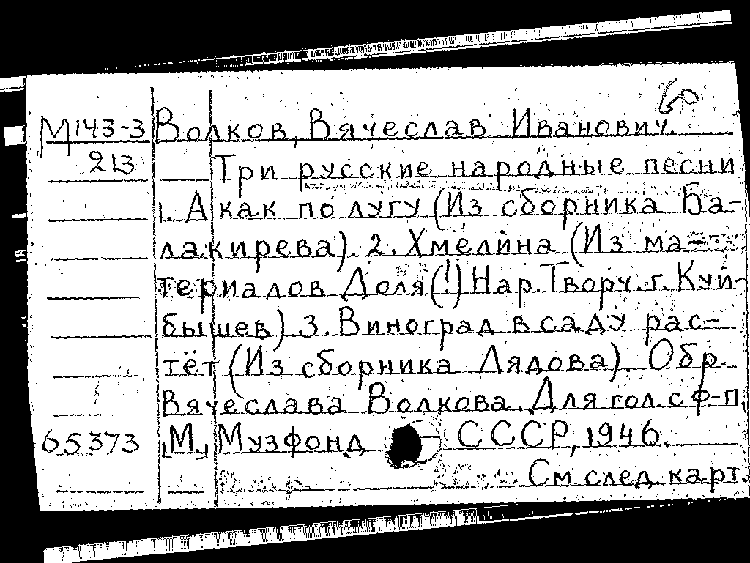 М143-3 Волков, Вячеслав Иванович.
213 Три русские народные песни
1. А как по лугу (Из сборника Ба-
лакирева). 2. Хмелина (Из ма-
териалов Доля(!) Нар. Творч. г. Куй-
бышев) 3. Виноград в саду рас-
тёт (Из сборника Лядова). Обр.
Вячеслава Волкова. Для гол. с ф-п.
65373 М., Музфонд СССР, 1946.
См след. карт.